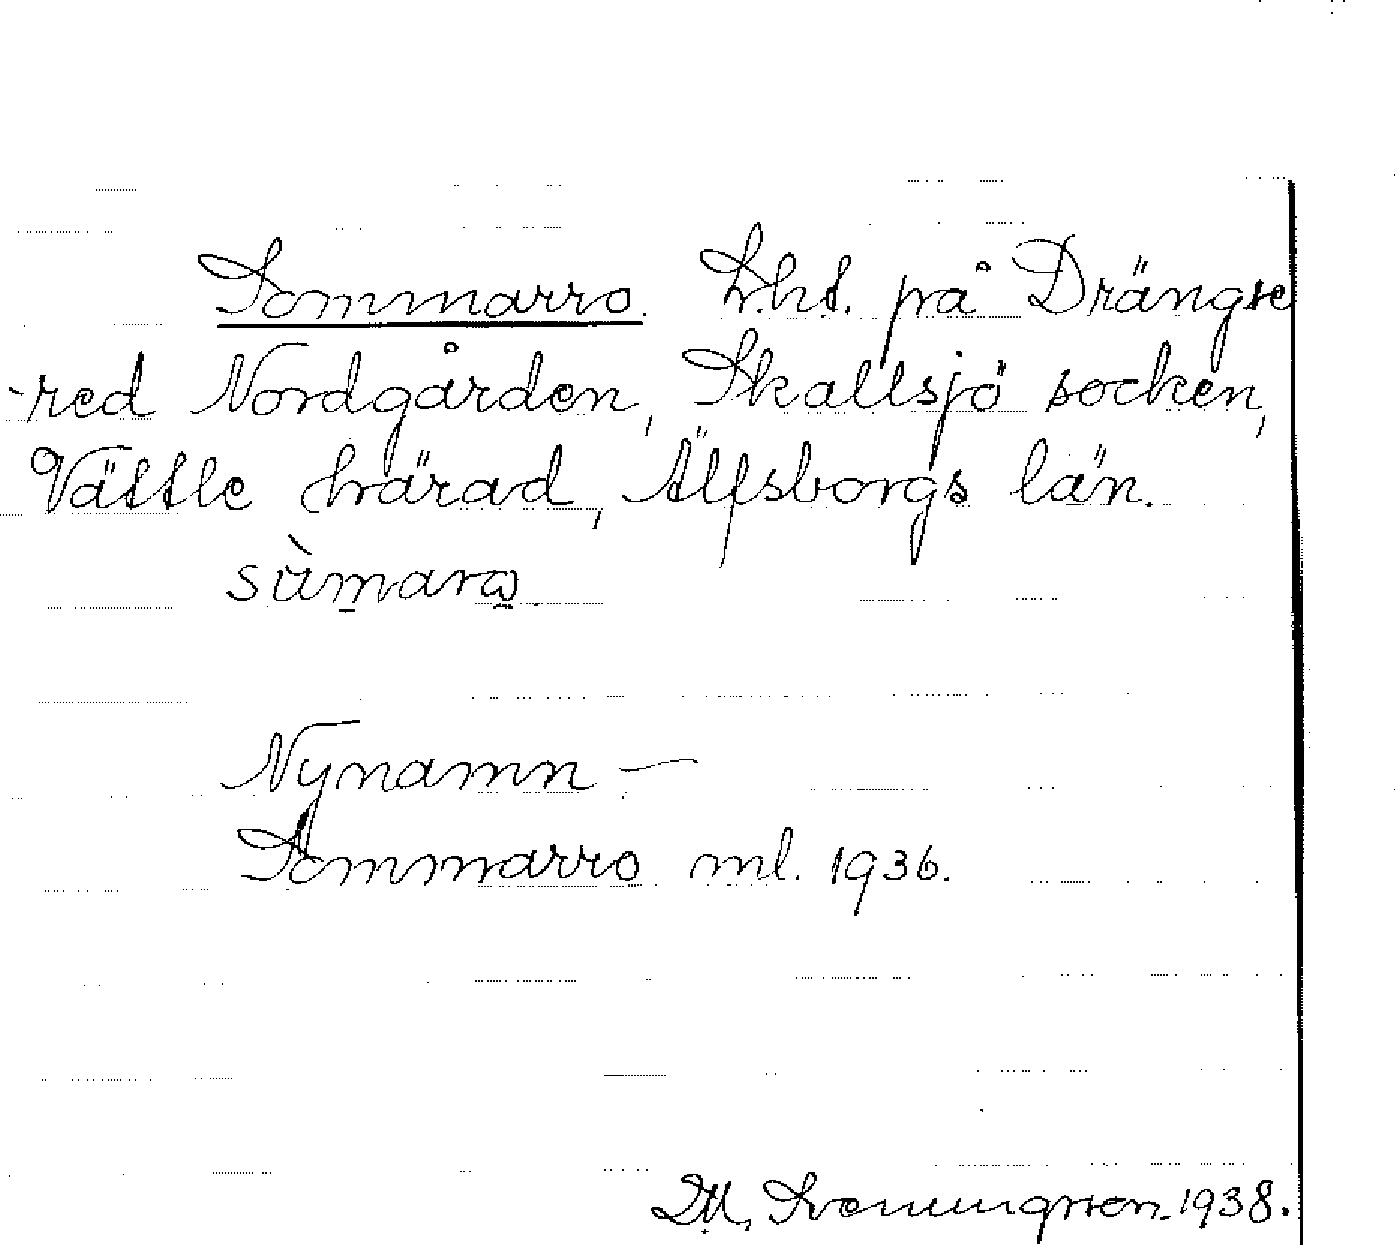 Sommarro. Lht. på Drängse
-red Nordgården, Skallsjö socken,
Vättle härad, Älfsborgs län.
sùmarω
Nynamn —
Sommarro ml. 1936.
Sveningsson. 1938.